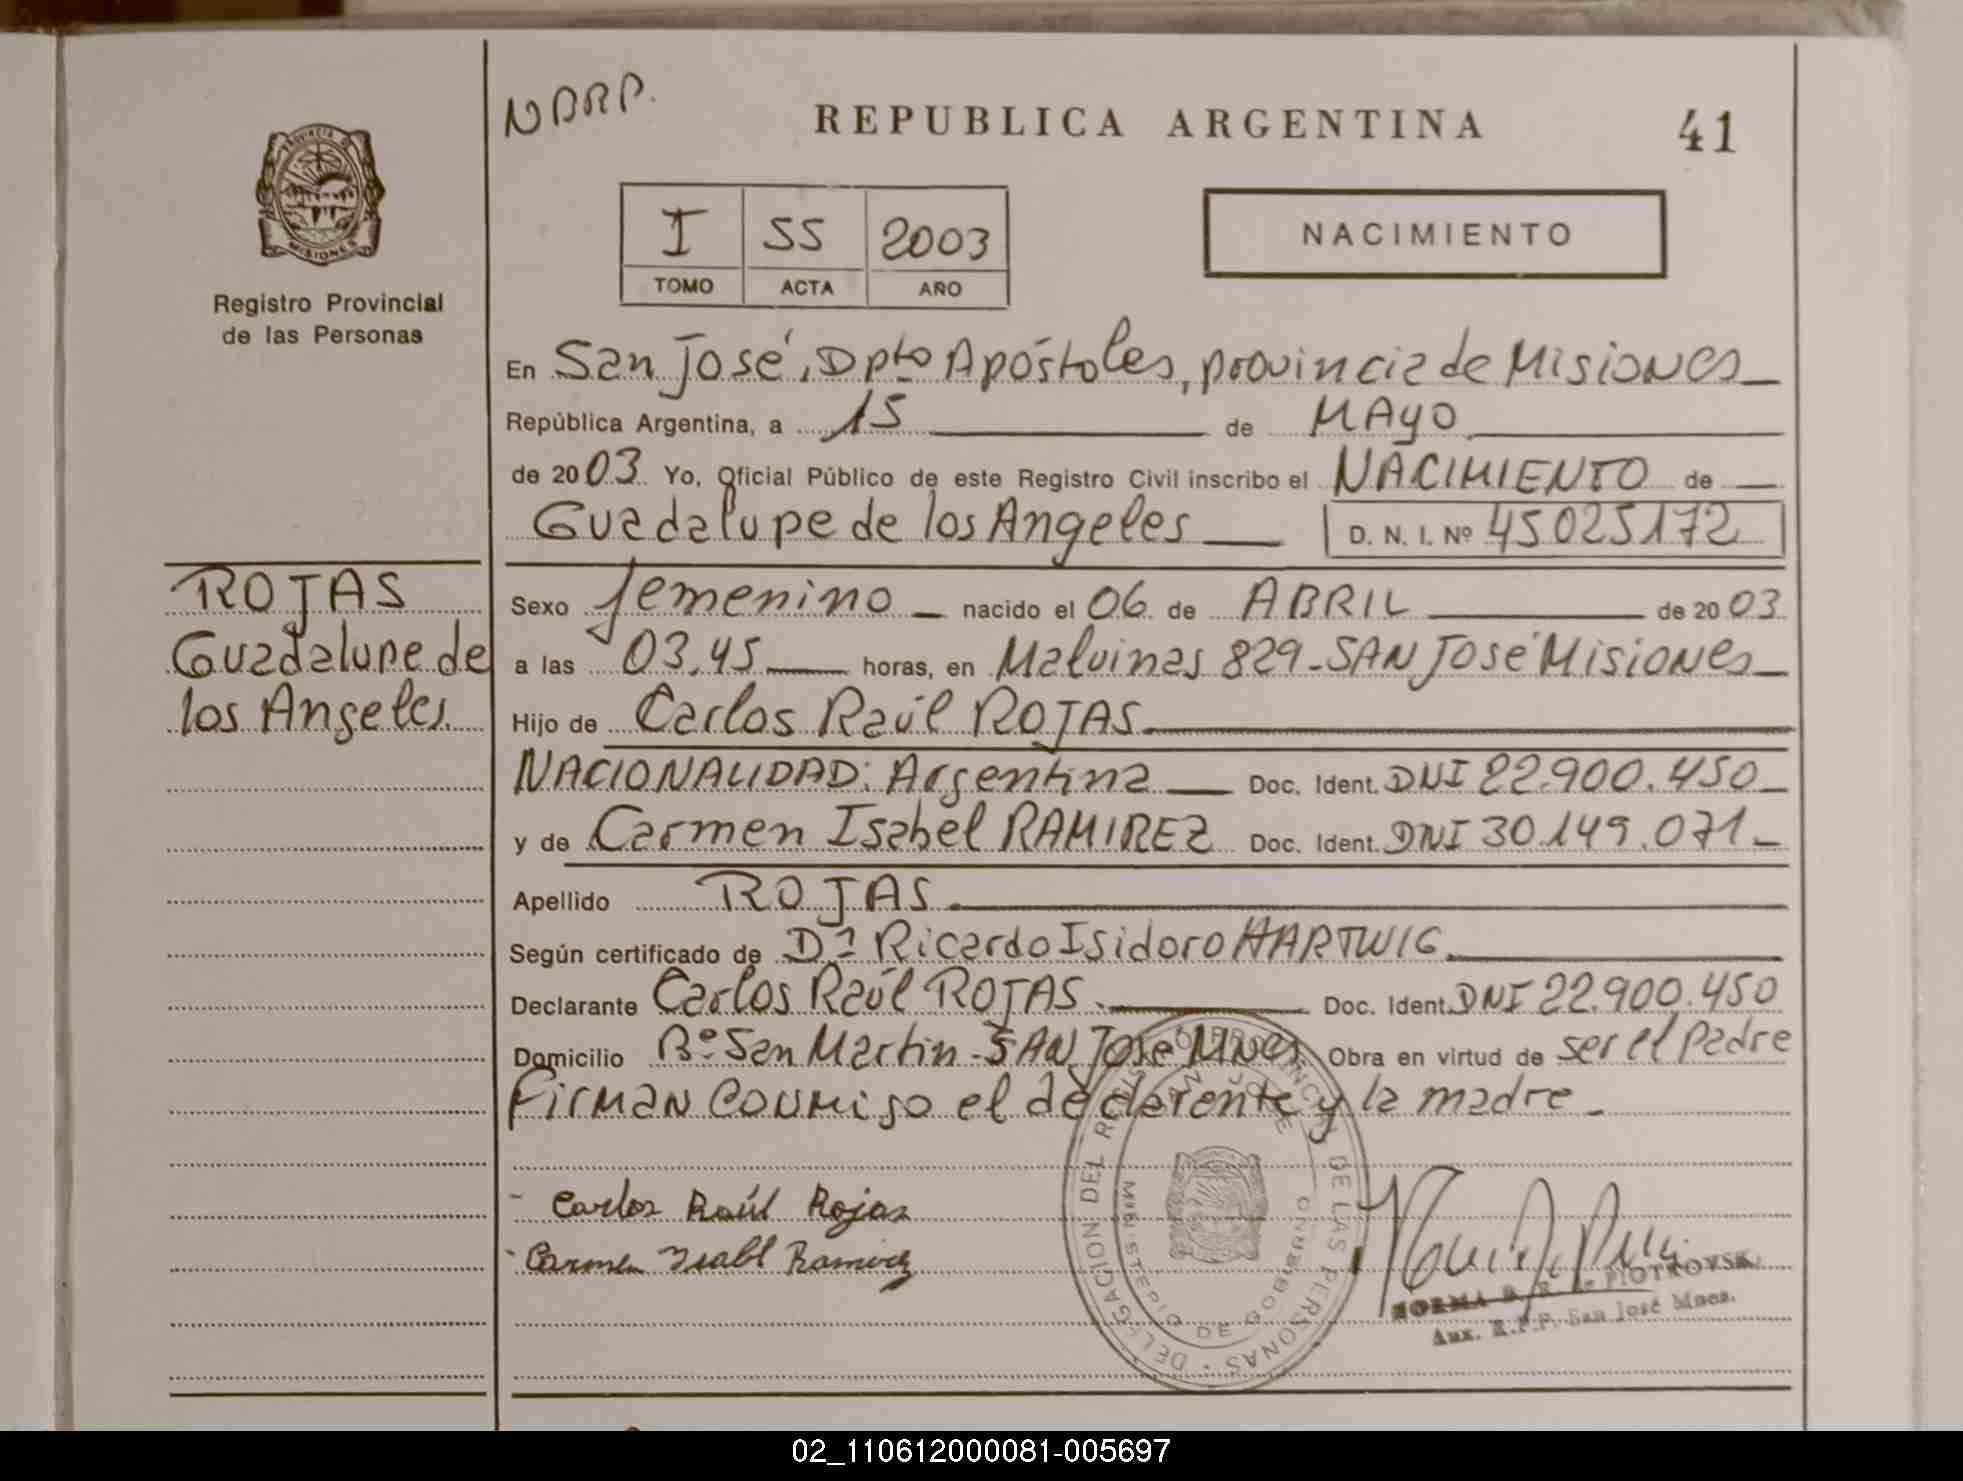 NDRP.
REPUBLICA ARGENTINA
41
PROVINCIA DE
MISIONES
Registro Provincial
de las Personas
I 55 2003
TOMO ACTA AÑO
NACIMIENTO
En San José, Dpto Apóstoles, provincia de Misiones
República Argentina, a 15 de MAYO
de 2003 Yo, Oficial Público de este Registro Civil inscribo el NACIMIENTO de
Guadalupe de los Angeles D. N. I. Nº 45025172
ROJAS
Guadalupe de
los Angeles
Sexo femenino nacido el 06 de ABRIL de 2003
a las 03.45 horas, en Malvinas 829-SAN José Misiones
Hijo de Carlos Raúl ROJAS
NACIONALIDAD: Argentina Doc. Ident. DNI 22.900.450
y de Carmen Isabel RAMIREZ Doc. Ident. DNI 30.149.071
Apellido ROJAS
Según certificado de Dr Ricardo Isidoro HARTWIG
Declarante Carlos Raúl ROJAS Doc. Ident. DNI 22.900.450
Domicilio Bº San Martin-SAN José Mnes Obra en virtud de ser el padre
Firman conmigo el declarente y la madre
- Carlos Raúl Rojas
- Carmen Isabl Ramirez
DELEGACION DEL REGISTRO PROVINCIAL DE LAS PERSONAS
SAN JOSE
MINISTERIO DE GOBIERNO
NORMA B. R. de PIOTROVSKI
Aux. R.P.P. San José Mnes.
02_110612000081-005697